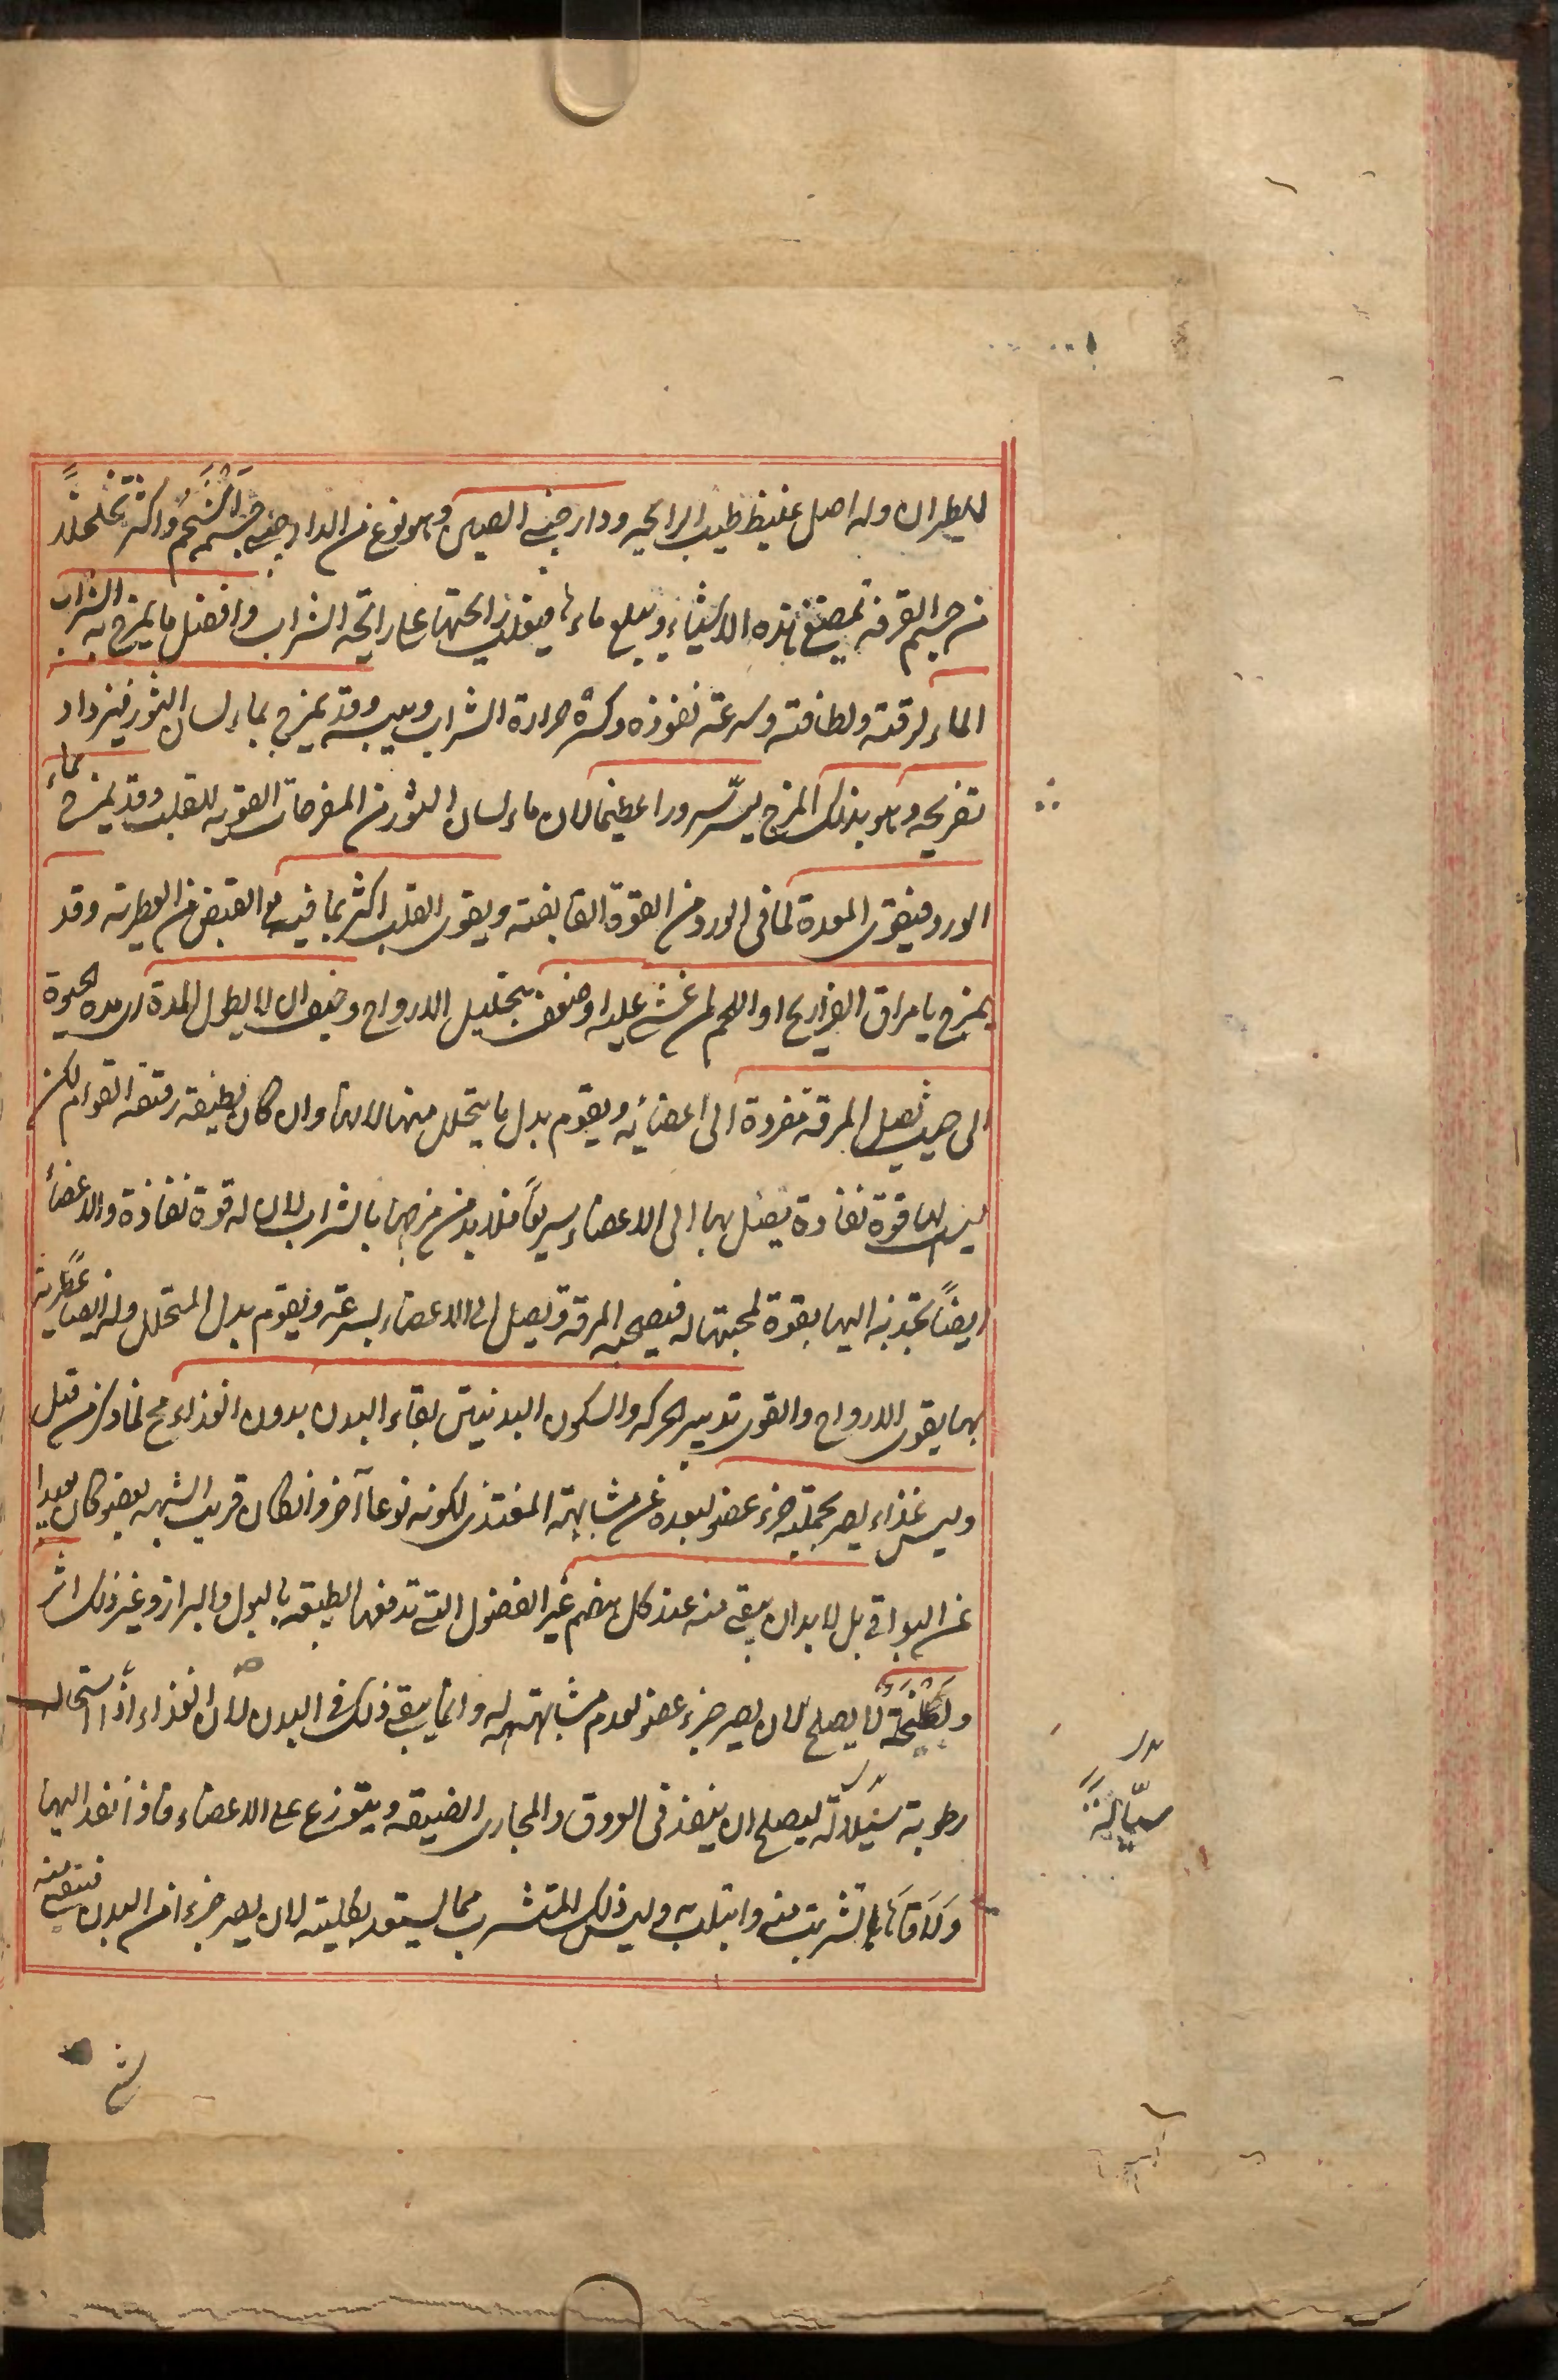 للطيران وله اصل غليظ طيب الرايحه ودار صينى الصين وهو نوع من الدارصينى جسم اشحم واكثر تخلخلاً
من جسم القرفه تمضغ هذه الاشياء ويبلع ماءها فيغلب رايحتها على رايحة الشراب وافضل ما يمزج به الشراب
الماء لرقته ولطافته وسرعة نفوذه وكسره حرارة الشراب ويبسه وقد يمزج بماء لسان الثور فيزداد
تفريحه وهو بذلك المزج يسرّ سرورا عظيما لان ماء لسان الثور من المفرحات المقويه للقلب وقد يمزج بماء
الورد فيقوى المعدة لما فى الورد من القوة القابضة ويقوى القلب اكثر بما فيه مع القبض من العطرية وقد
يمزج بامراق الفراريج او اللحم لمن غشى عليه او ضعف بتحليل الارواح وخيف ان لا يطول المدة اى مدة الحيوة
الى حيث تصل المرقة مفردة الى اعضائه ويقوم بدل ما يتحلل منها لانها وان كان لطيفة رقيقة القوام لكن
ليس لها قوة نفاذة يصل بها الى الاعضاء سريعاً فلا بد من مزجها بالشراب لان له قوة نفاذة والاعضاء
ايضاً تجذبه اليها بقوة لمحبتها له فيصحبه المرقة وتصل الى الاعضاء بسرعة ويقوم بدل المتحلل وله ايضا عطرية
بها يقوى الارواح والقوى تدبير الحركه والسكون البدنيتين بقاء البدن بدون الغذاء مح لما ذكر من قبل
وليس غذاء يصير بجملته جزء عضو لبعده عن مشابهة المغتذى لكونه نوعا آخر وان كان قريب الشبه بعضو كان بعيدا
عن البواقى بل لا بد ان يبقى منه عند كل هضم غير الفضول التى تدفعها الطبيعة بالبول والبراز وغير ذلك اثر
ولطخة لا يصلح لان يصير جزء عضو لعدم مشابهته له وانما يبقى ذلك فى البدن لان الغذاء اذا استحال
رطوبة سيلانة ليصلح ان ينفذ فى العروق والمجارى الضيقه ويتوزع على الاعضاء فاذا نفذ اليها
ولاقاها تشربت منه وابتلت به وليس ذلك المتشرب مما يستعد بكليته لان يصير جزءا من البدن فيبقى منه
بدل
سيّالة